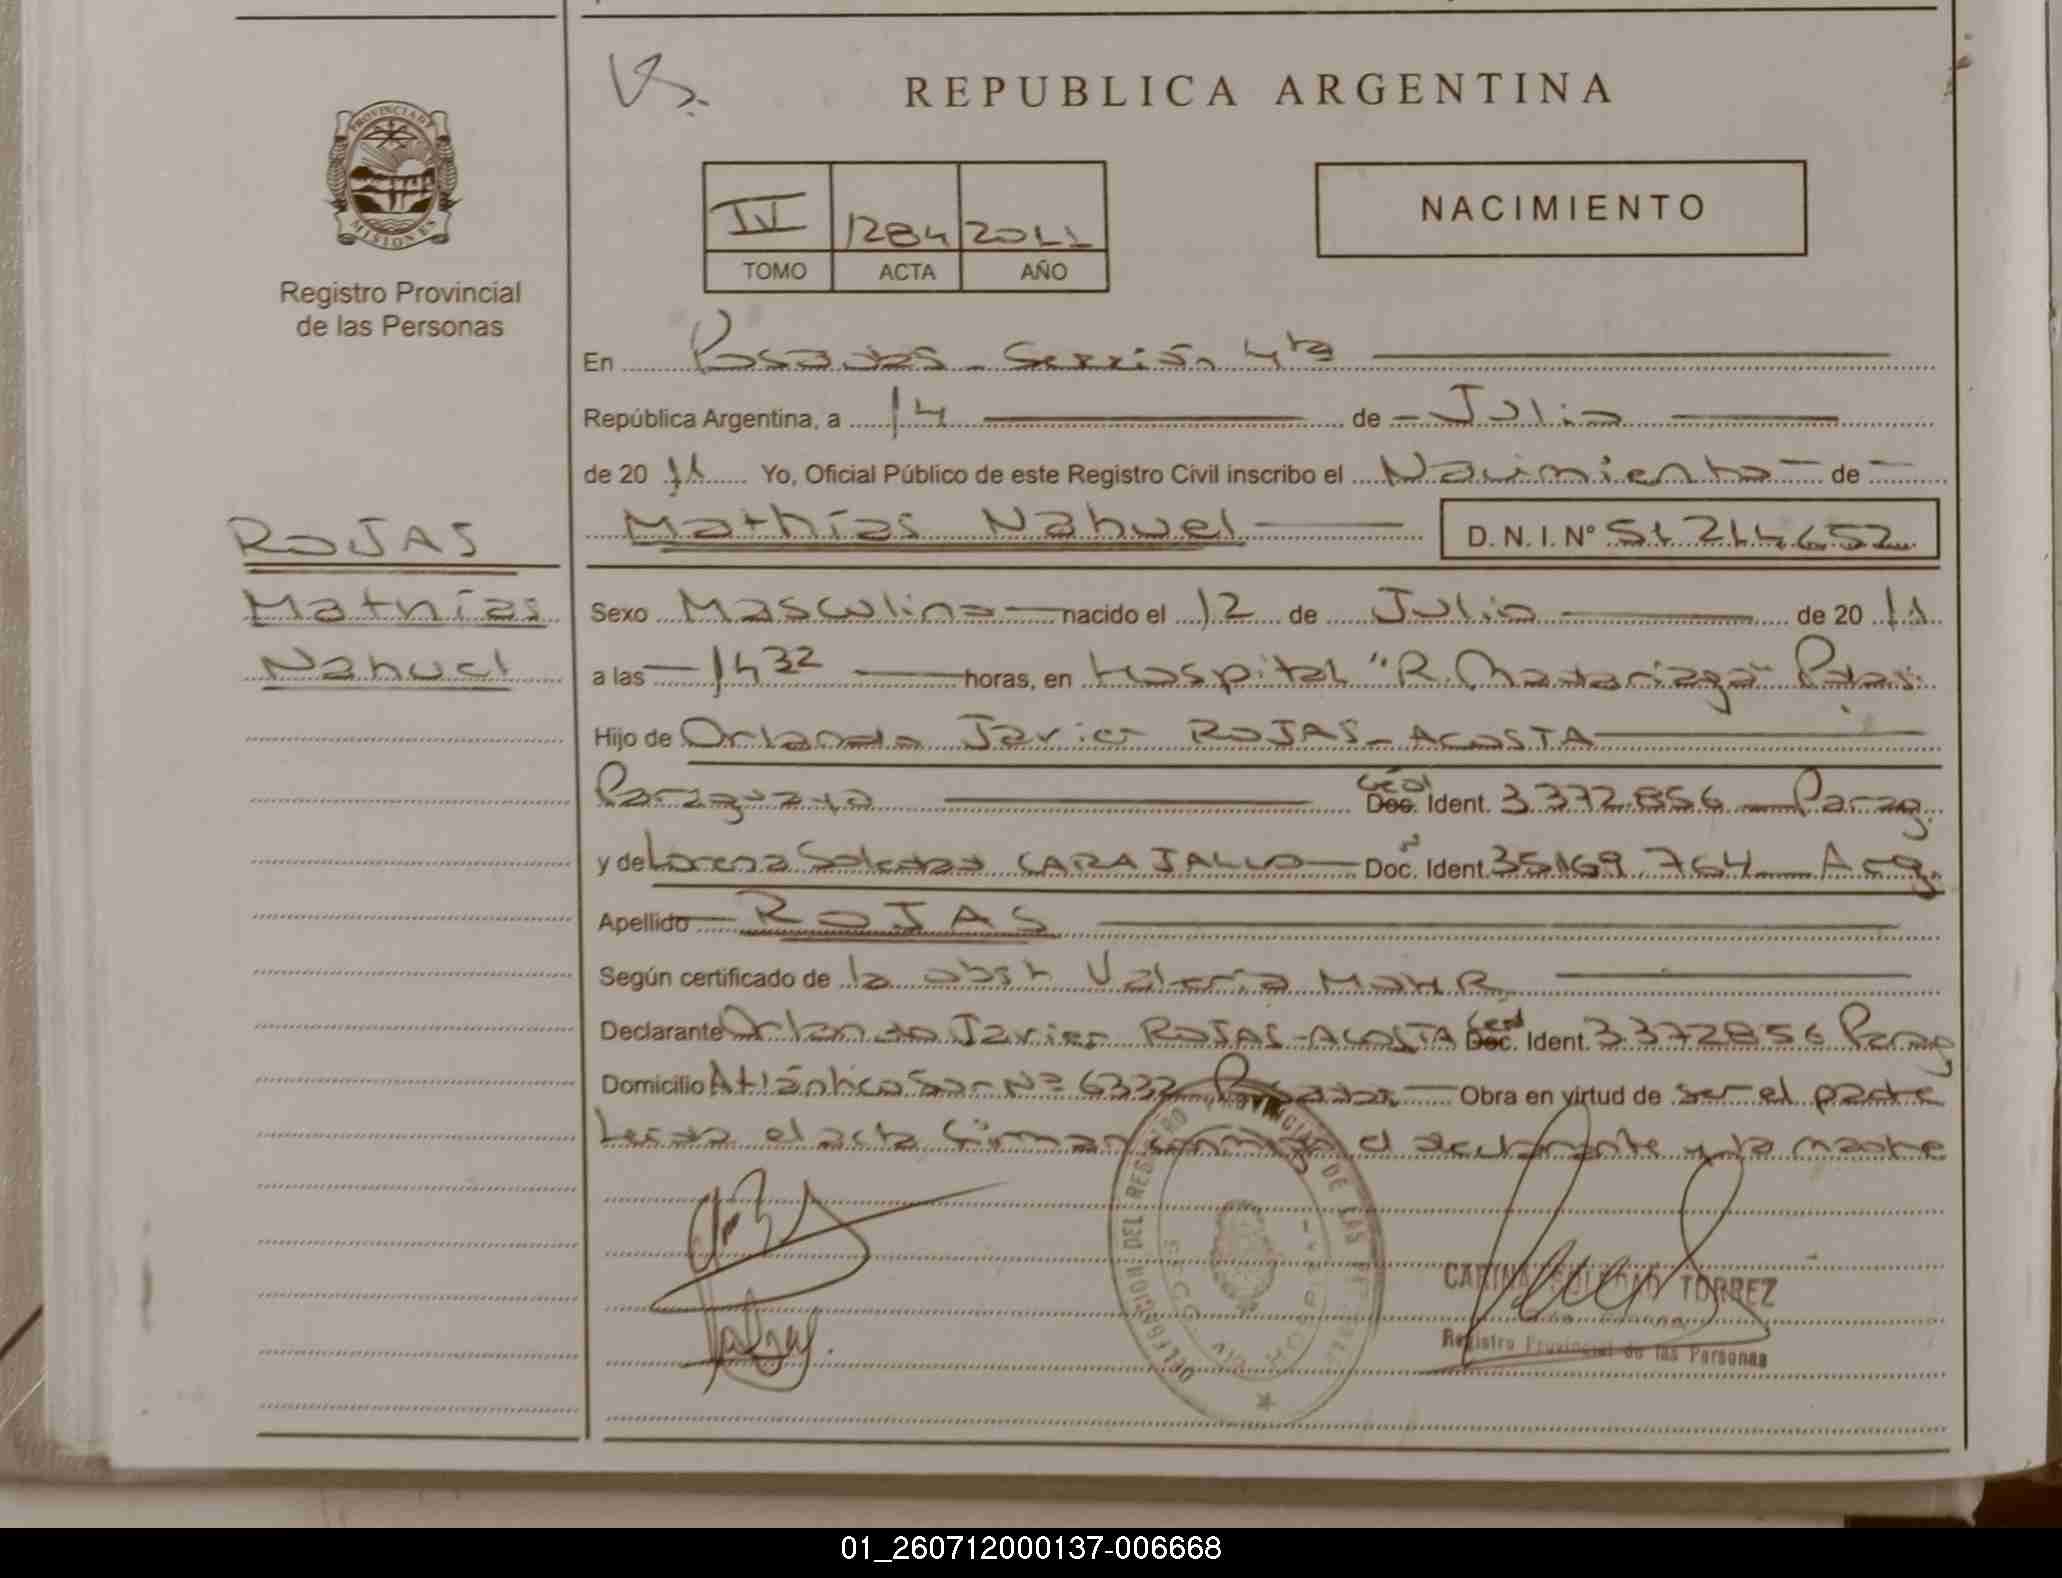 Vs.
REPUBLICA ARGENTINA
PROVINCIA D
MISIONES
Registro Provincial
de las Personas
IV 1284 2011
TOMO ACTA AÑO
NACIMIENTO
En Posadas - Sección 4ta
República Argentina, a 14 de Julio
de 20 11 Yo, Oficial Público de este Registro Civil inscribo el Nacimiento de
Mathías Nahuel D.N.I. Nº 51.214.652
ROJAS
Mathías
Nahuel
Sexo Masculino nacido el 12 de Julio de 20 11
a las 14 32 horas, en Hospital "R. Madariaga" Pdas.
Hijo de Orlando Javier ROJAS - ACOSTA
Paraguayo Céd Doc. Ident. 3372856 Parag.
y de Lorena Soledad CARAJALLO Doc. Ident. 35.169.764 Arg.
Apellido ROJAS
Según certificado de la obst. Valeria MOHR
Declarante Orlando Javier ROJAS - ACOSTA Céd Doc. Ident. 3372856 Parag
Domicilio Atlántico Sur Nº 6332 Posadas Obra en virtud de ser el padre
Leída el acta firman conmigo el declarante y la madre
DELEGACION DEL REGISTRO PROVINCIAL DE LAS PERSONAS
SECC.
CARINA SOLEDAD TORREZ
Registro Provincial de las Personas
01_260712000137-006668